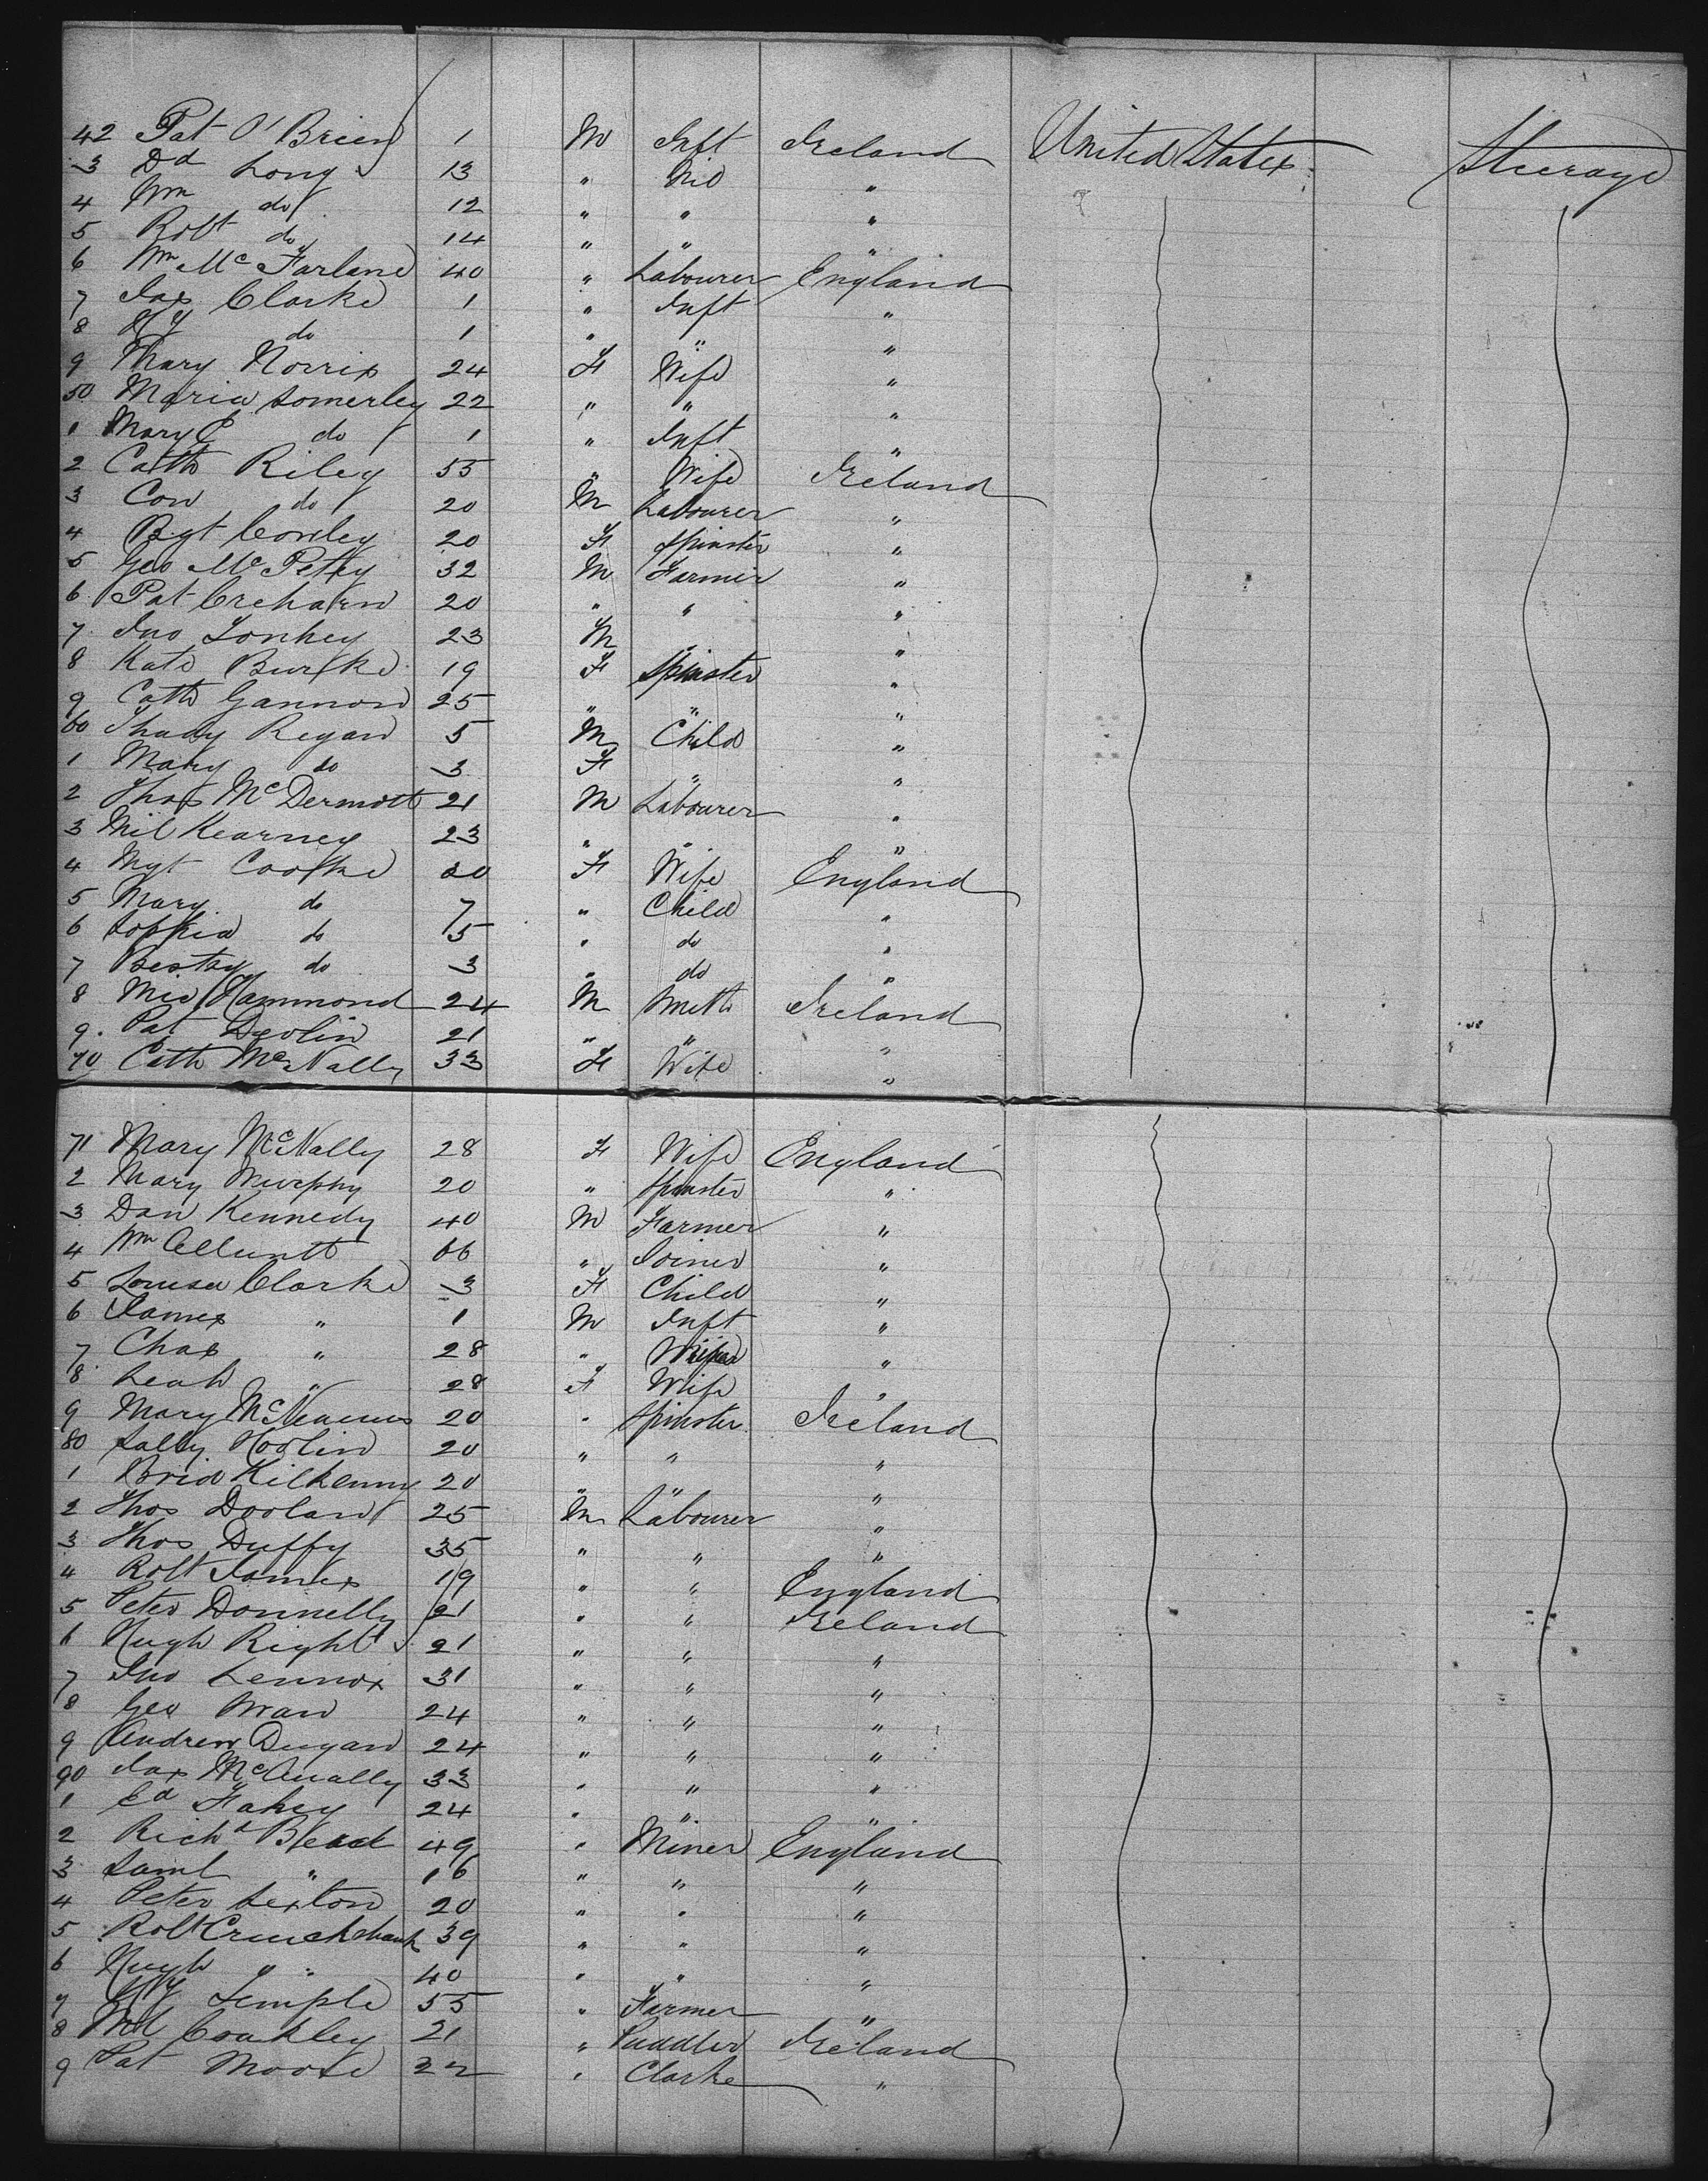 42 Pat O'Brien 1 M Inft Ireland United States Steerage
3 Dd Long 13 " Nid "
4 Wm do 12 " " "
5 Robt do 14 " " "
6 Wm McFarland 40 " Labourer England
7 Jas Clarke 1 " Inft "
8 Hy do 1 " " "
9 Mary Norris 24 F Wife "
50 Maria Somerley 22 " " "
1 Mary E do 1 " Inft "
2 Cath Riley 55 " Wife Ireland
3 Con do 20 M Labourer "
4 Bgt Conley 20 F Spinster "
5 Geo McPetry 32 M Farmer "
6 Pat Creharn 20 " " "
7 Jno Lonhey 23 M " "
8 Kate Burke 19 F Spinster "
9 Cath Gannon 25 " " "
60 Thady Regan 5 M Child "
1 Mary do 3 F " "
2 Thos McDermott 21 M Labourer "
3 Mil Kearney 23 " " "
4 Mgt Cooke 20 F Wife England
5 Mary do 7 " Child "
6 Sophia do 5 " do "
7 Bestsy do 3 " do "
8 Mic Hammond 24 M Smith Ireland
9 Pat Devlin 21 " " "
70 Cath McNally 33 F Wife "
71 Mary McNally 28 F Wife England
2 Mary Murphy 20 " Spinster "
3 Dan Kennedy 40 M Farmer "
4 Wm 66 " Joiner "
5 Louisa Clarke 3 F Child "
6 James " 1 M Inft "
7 Chas " 28 " "
8 Leah " 28 F Wife "
9 Mary 20 " Spinster Ireland
80 Sally 20 " " "
1 Brid Kilkenny 20 " " "
2 Thos Doolan 25 M Labourer "
3 Thos Duffy 35 " " "
4 Robt James 19 " " England
5 Peter Donnelly 21 " " Ireland
6 Hugh Right 21 " " "
7 Jno Lennox 31 " " "
8 Geo 24 " " "
9 Andrew Dugan 24 " " "
90 Jas McAnally 33 " " "
1 Ed Fahey 24 " " "
2 Richd Bead 49 " Miner England
3 Saml " 16 " " "
4 Peter Sexton 20 " " "
5 Robt Cruickshank 39 " " "
6 Hugh " 40 " " "
7 Hy Temple 55 " Farmer "
8 Ml Coakley 21 " Puddler Ireland
9 Pat Moore 22 " Clarke "